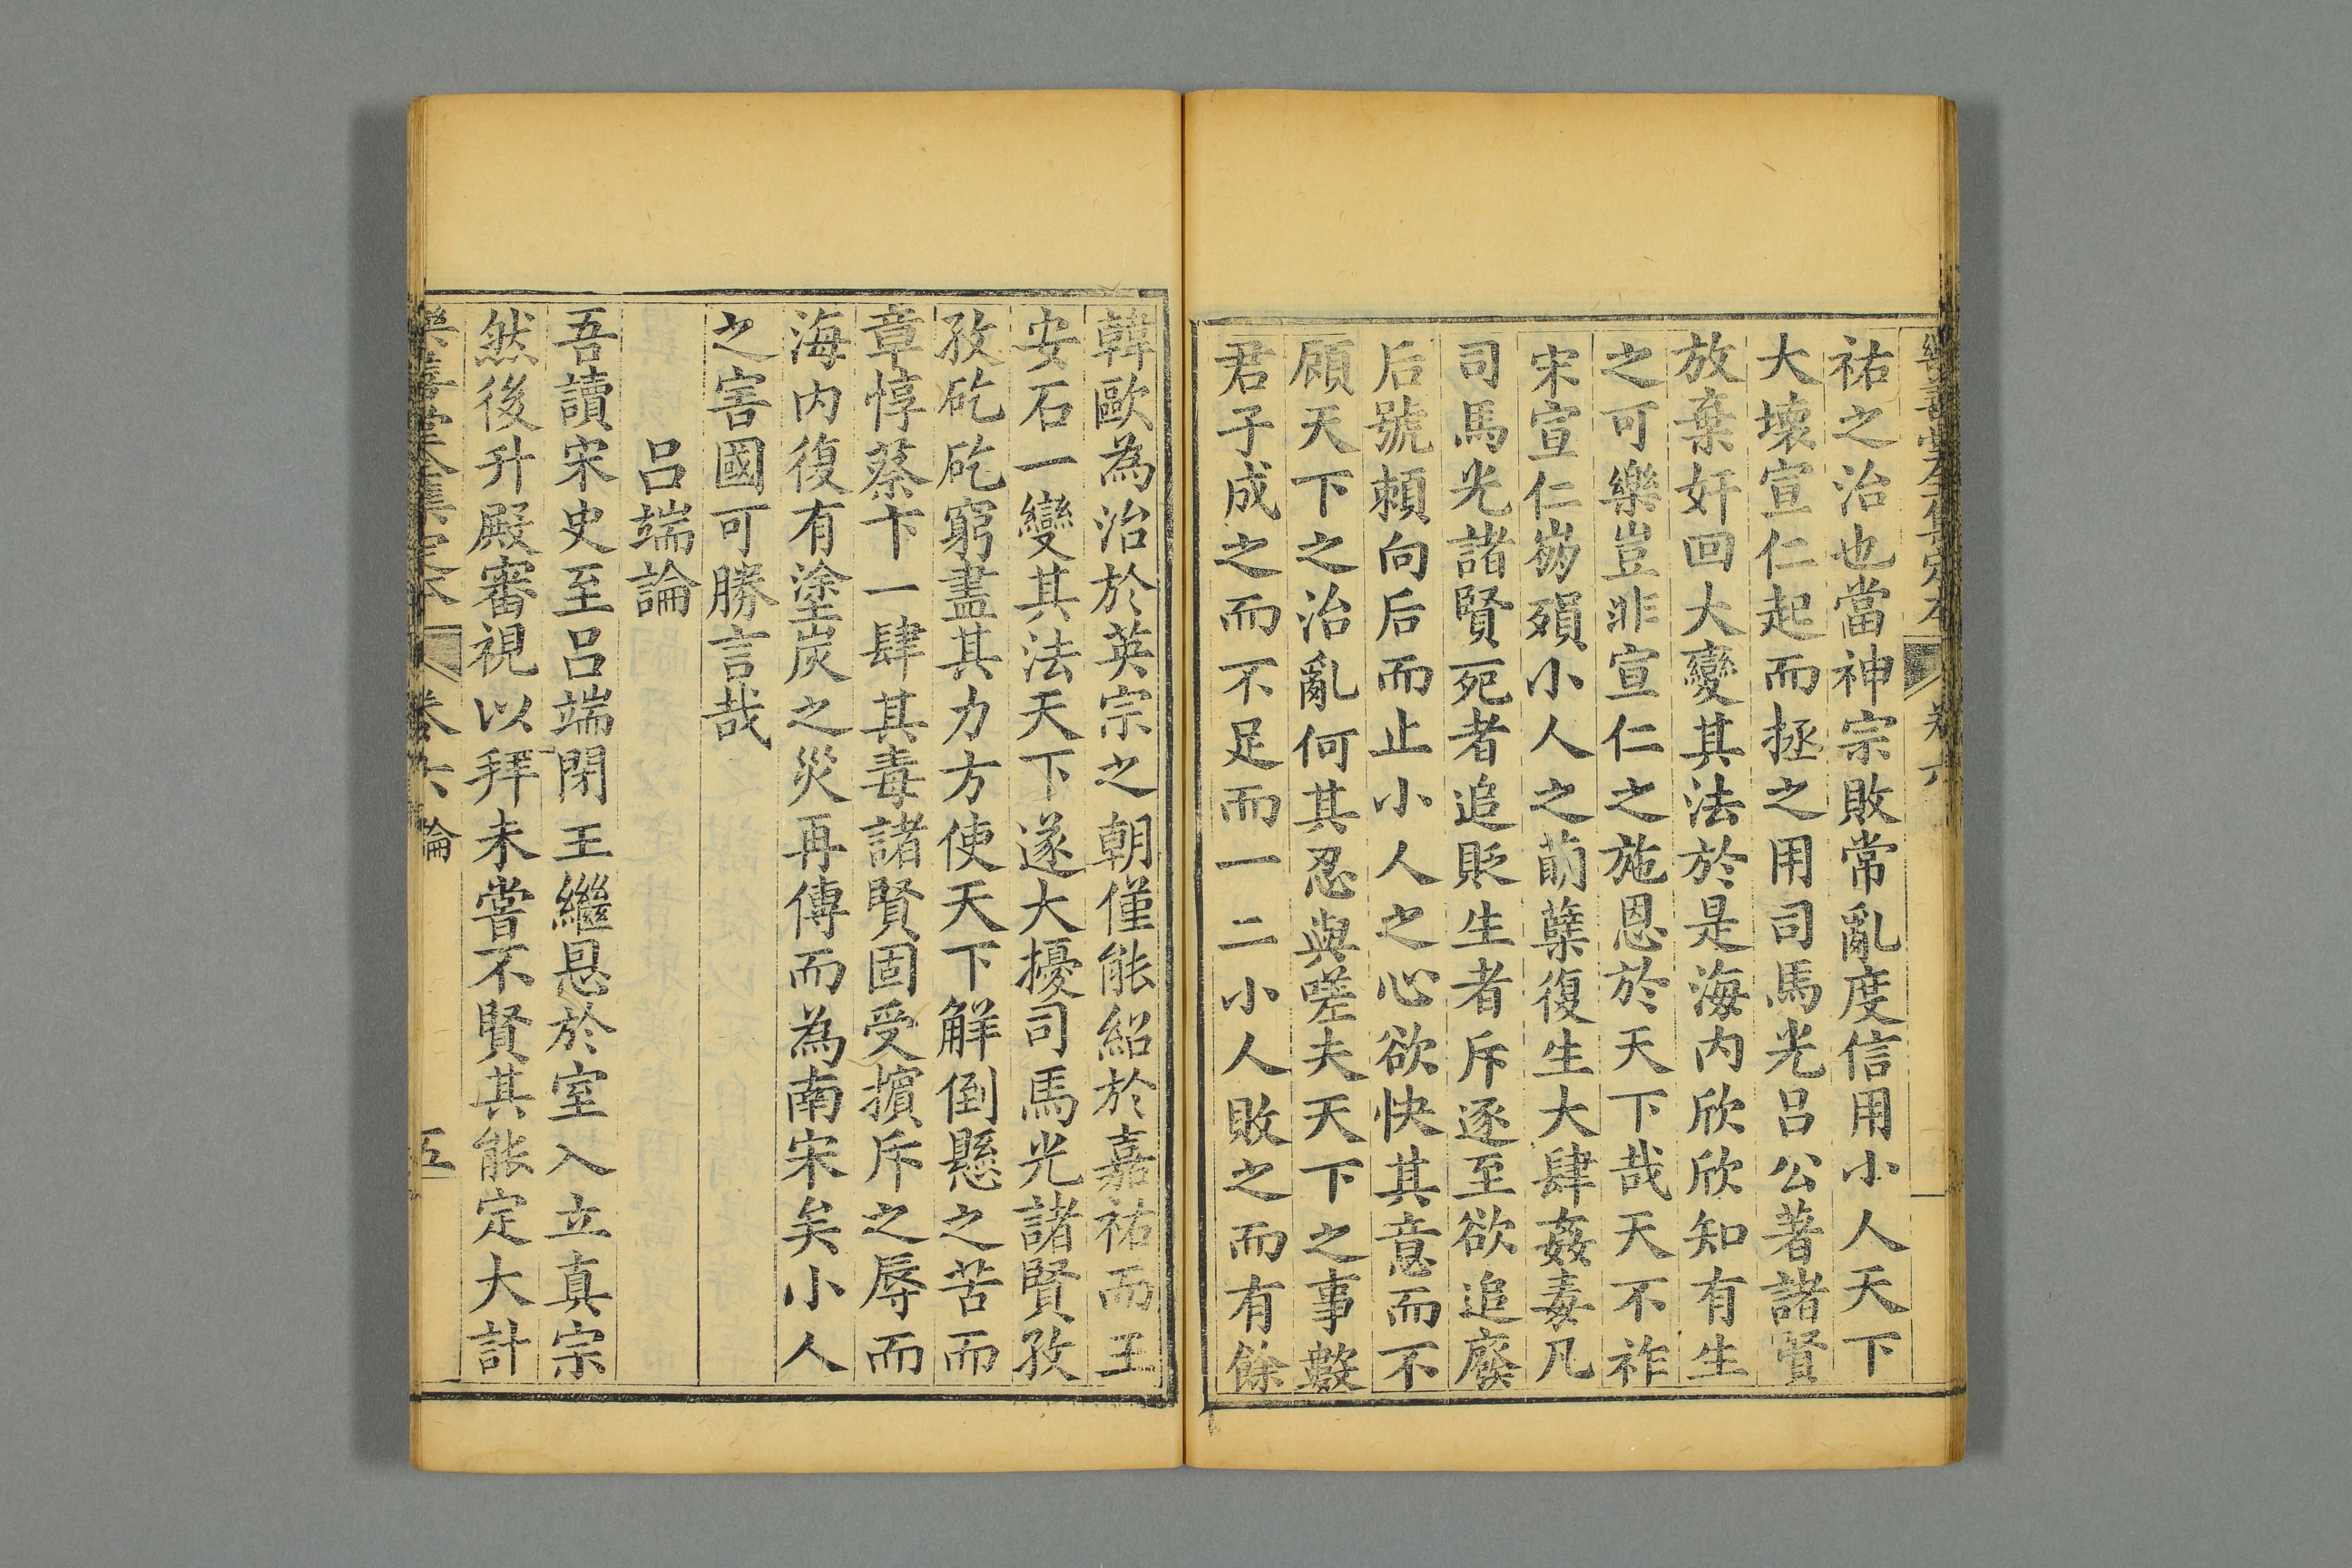 樂善堂全集定本 卷六
祐之治也當神宗敗常亂度信用小人天下
大壞宣仁起而拯之用司馬光呂公著諸賢
放棄奸回大變其法於是海内欣欣知有生
之可樂豈非宣仁之施恩於天下哉天不祚
宋宣仁崩殞小人之萌蘖復生大肆姦毒凡
司馬光諸賢死者追貶生者斥逐至欲追廢
后號頼向后而止小人之心欲快其意而不
顧天下之治亂何其忍與嗟夫天下之事數
君子成之而不足而一二小人敗之而有餘
韓歐為治於英宗之朝僅能紹於嘉祐而王
安石一變其法天下遂大擾司馬光諸賢孜
孜矻矻窮盡其力方使天下解倒懸之苦而
章惇蔡卞一肆其毒諸賢固受擯斥之辱而
海内復有塗炭之災再傳而為南宋矣小人
之害國可勝言哉
呂端論
吾讀宋史至呂端閉王繼恩於室入立真宗
然後升殿審視以拜未嘗不賢其能定大計
樂善堂全集定本 卷六 論 五